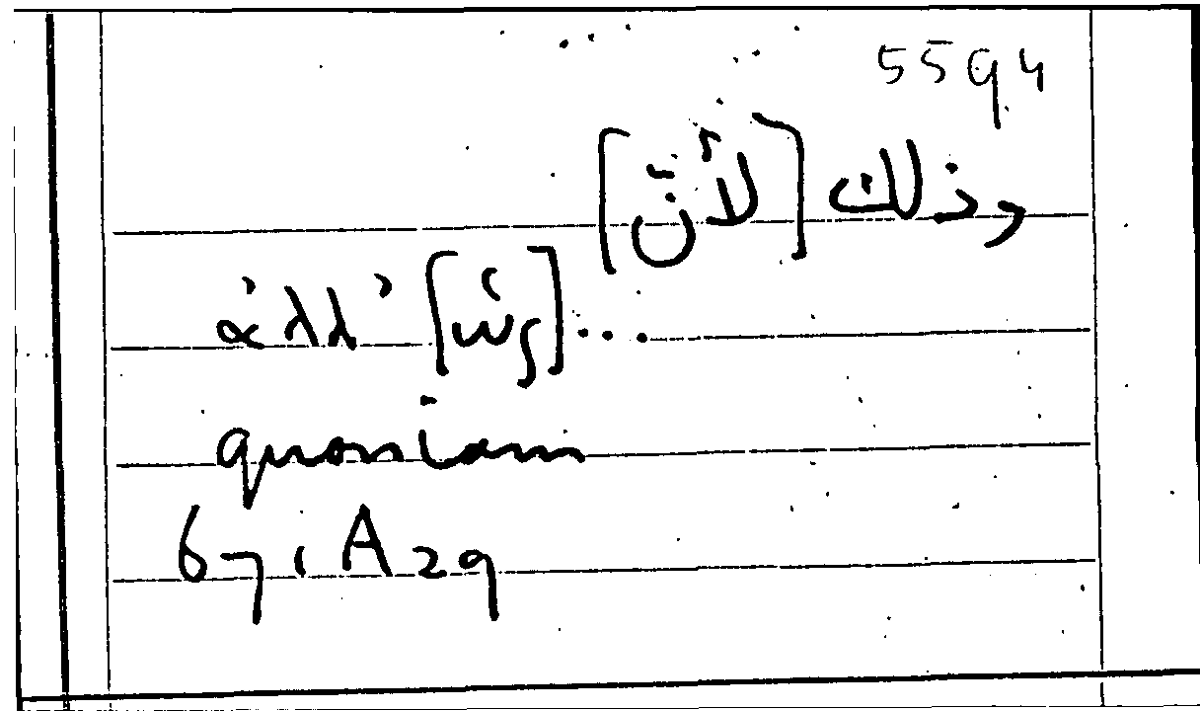 5594
وذلك [لأنّ]
ἀλλ' [ὡς]...
quoniam
67, A29